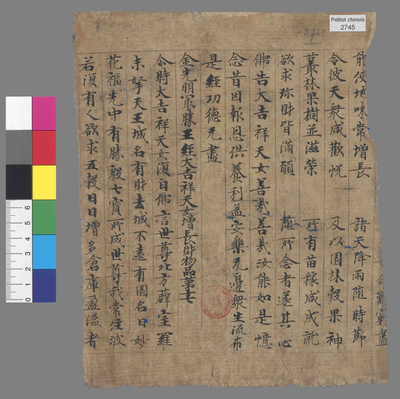 Pelliot chinois
2745
難窮盡
能使地味常增長 諸天降雨隨時節
令彼天衆咸歡悅 及以園林穀果神
叢林果樹並滋榮 所有苗稼咸成就
欲求珎財皆滿願 隨所念者遂其心
佛告大吉祥天女善哉善哉汝能如是憶
念昔因報恩供養利益安樂无邊衆生流布
是經功德无盡
金光明冣勝王經大吉祥天女增長財物品第十七
尒時大吉祥天女復白佛言世尊北方薜室羅
末拏天王城名有財去城不遠有園名曰妙
花福光中有勝殿七寶所成世尊我常住彼
若復有人欲求五穀日日增多倉庫盈溢者